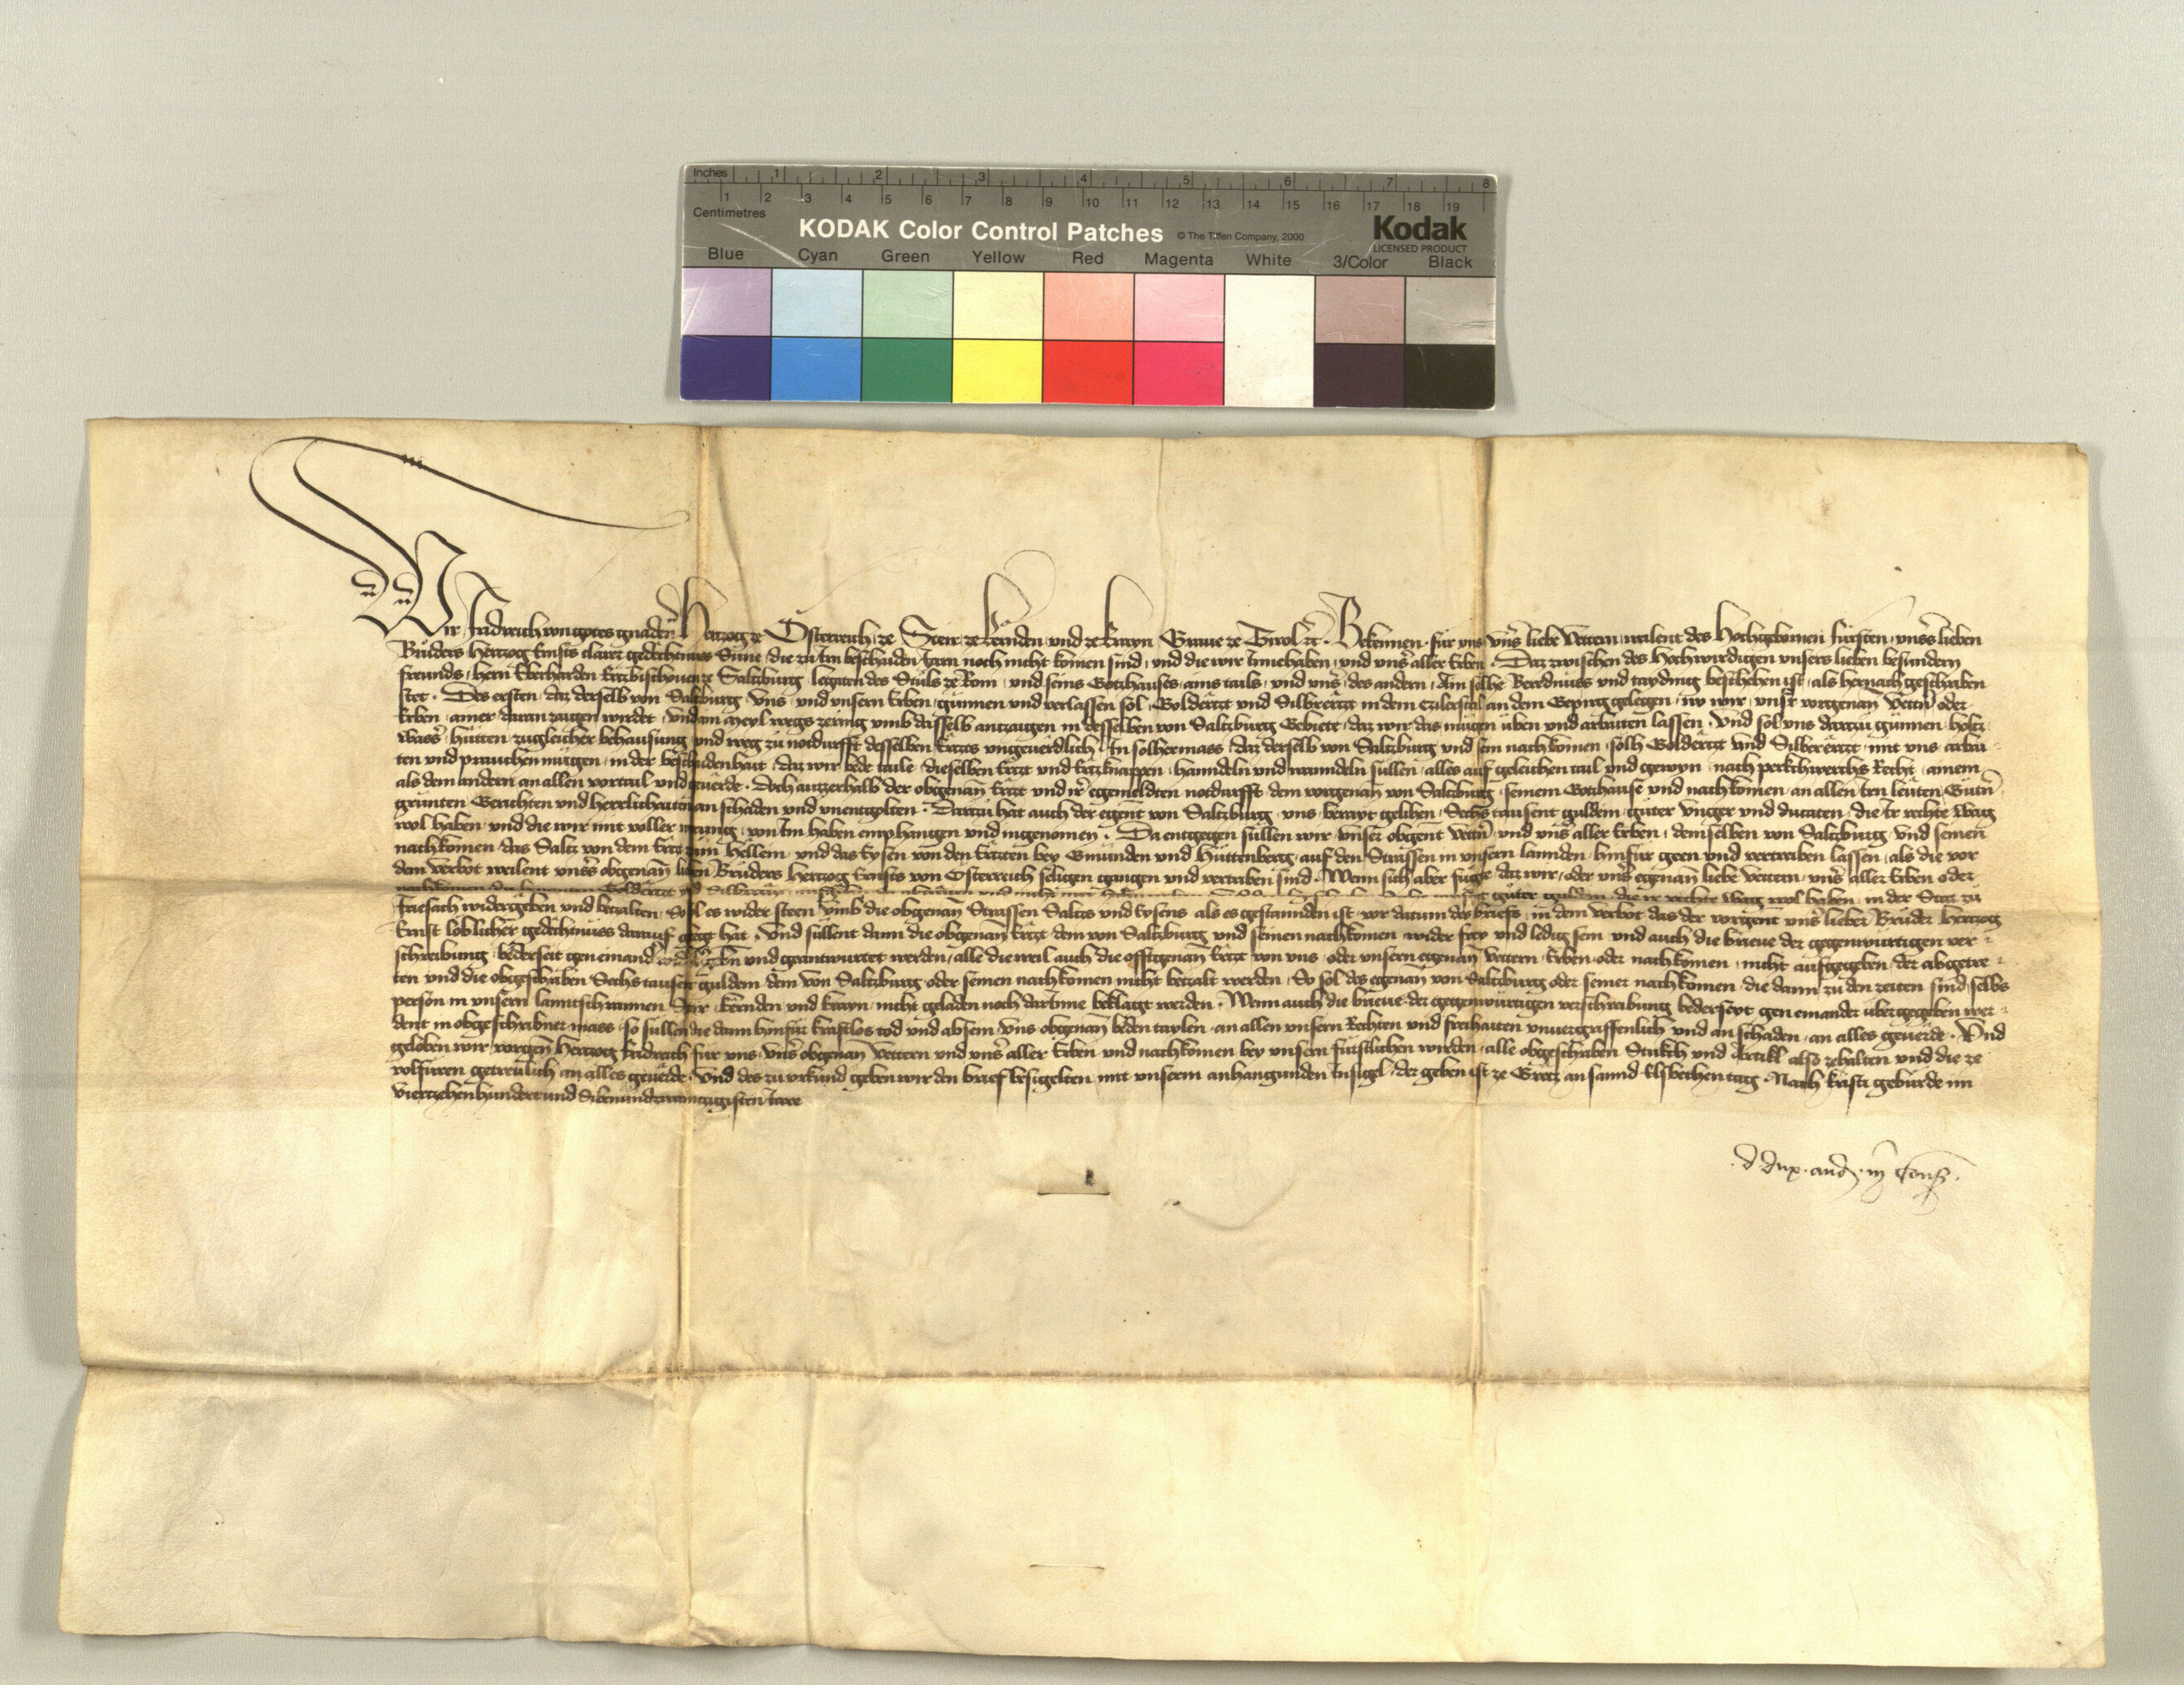 Inches 1 2 3 4 5 6 7 8
1 2 3 4 5 6 7 8 9 10 11 12 13 14 15 16 17 18 19
Centimetres
KODAK Color Control Patches © The Tiffen Company, 2000 Kodak
LICENSED PRODUCT
Blue Cyan Green Yellow Red Magenta White 3/Color Black
Wir Fridreich von gotes gnaden Hertzog ze Österreich ze Steir ze Kernden und ze Krayn Graue ze Tirol etc. Bekennen für uns unser liebe Vettern weilent des Hochgebornen fürsten unsers lieben
Brůders Hertzog Ernsts clarer gedechtnüss Süne die zu Irn beschaiden Jaren noch nicht komen sind und die wir Innehaben und unser aller Erben Daz zwischen des Hochwirdigen unsers lieben besundern
freunds hern Eberharden Ertzbischouen ze Saltzburg legaten des Stůls ze Rom und seins Gotzhauses ains tails und unser des andern Ain solhe Berednüss und tayding beschehen ist als hernach geschriben
stet Des ersten daz derselb von Saltzburg uns und unsern Erben günnen und verlassen sol Golderczt und Silbrerczt in dem Czilerstal an dem Gepirg gelegen wo wir unser vorgenan Vettern oder
Erben ainer daran zaigen wirdet und ain meyl wegs zering umb dasselb antzaigen in desselben von Saltzburg Gebiete daz wir das mügen üben und arbaiten lassen Und sol uns dartzů günnen holtz
wasser hütten zugleicher behausung und weg zů notdurfft desselben Ertzts ungeuerdlich In solhermass daz derselb von Saltzburg und sein nachkomen solh Golderczt und Silbererczt mit uns arbai
ten und prauchen mügen in der beschaidenhait daz wir bede taile dieselben Ertzt und Ertzknappen hanndeln und wanndeln süllen alles auf geleichen tail und gewyn nach perkchwerchs Recht ainem
als dem andern an allen vortail und geuerde Doch auzzerhalb der obgenan Ertzt und ir egemeldten notdurfft dem vorgenan von Saltzburg seinem Gotzhause und nachkomen an allen irn leuten Gütern
grünten Gerichten und herrlichaiten an schaden und unentgolten Dartzů hat auch der egent von Saltzburg uns berayt gelihen Sechs tausent guldein güter Unger und ducaten die Ir rechte Wag
wol haben und die wir mit voller werung von Im haben emphangen und ingenomen Da entgegen süllen wir unser obgent Vettern und uns aller Erben demselben von Saltzburg und seinen
nachkomen das Saltz von dem Ertz zum Hellein und das Eysen von den Ertzten bey Gmünden und Hüttenberg auf den Strassen in unsern lannden hinfür geen und vertreiben lassen als die vor
dem verbot weilent unsers obgenan lieben Brůders Hertzog Ernsts von Österreich seligen gangen und vertriben sind Wenn sich aber fügte daz wir oder unser egenan liebe Vettern uns aller Erben oder
güter guldein die ir rechte Wag wol haben in der Stat zů
Friesach widergeben und betzalten So sol es wider steen umb die obgenan Strassen Saltzs und Eysens als es gestannden ist vor datum des briefs in dem verbot das der vorgent unser lieber Brůder Hertzog
Ernst loblicher gedechtnüss darauf gelegt hat Und süllent dann die obgenan Ertzt dem von Saltzburg und seinen nachkomen wider frey und ledig sein und auch die brieue der gegenwurtigen ver
schreibung bederseit gen einander widergeben und geantwurtet werden alle die weil auch die offtgenan Ertzt von uns oder unsern egenan Vettern Erben oder nachkomen nicht aufgegeben der abgetre
ten und die obgeschriben Sechs tausent guldein dem von Saltzburg oder seinen nachkomen nicht betzalt werden So sol des egenan von Saltzburg oder seiner nachkomen die dann zu den zeiten sind selbs
person in unsern lanntschrannen Steir Kernden und Krayn nicht geladen noch darinne beklagt werden Wenn auch die brieue der gegenwurtigen verschreibung bederseyt gen einander übergegeben wer
dent in obgeschribner mass so süllen die dann hinfür kraftlos tod und absein uns obgenan beden taylen an allen unsern Rechten und freihaiten unuergriffenlich und an schaden an alles geuerde Und
geloben wir vorgen Hertzog Fridreich für uns uns obgenan Vettern und uns aller Erben und nachkomen bey unsern fürstlichen wirden alle obgeschriben Stukch und Artikl also zehalten und die ze
volfüren getreulich an alles geuerde Und des zu urkund geben wir den brief besigelten mit unserm anhangunden Insigel der geben ist ze Gretz an sannd Elsbethen tag Nach kristi gebürde im
Viertzehenhundert und Sibenundzwaintzigisten Jare
d dux in Cons